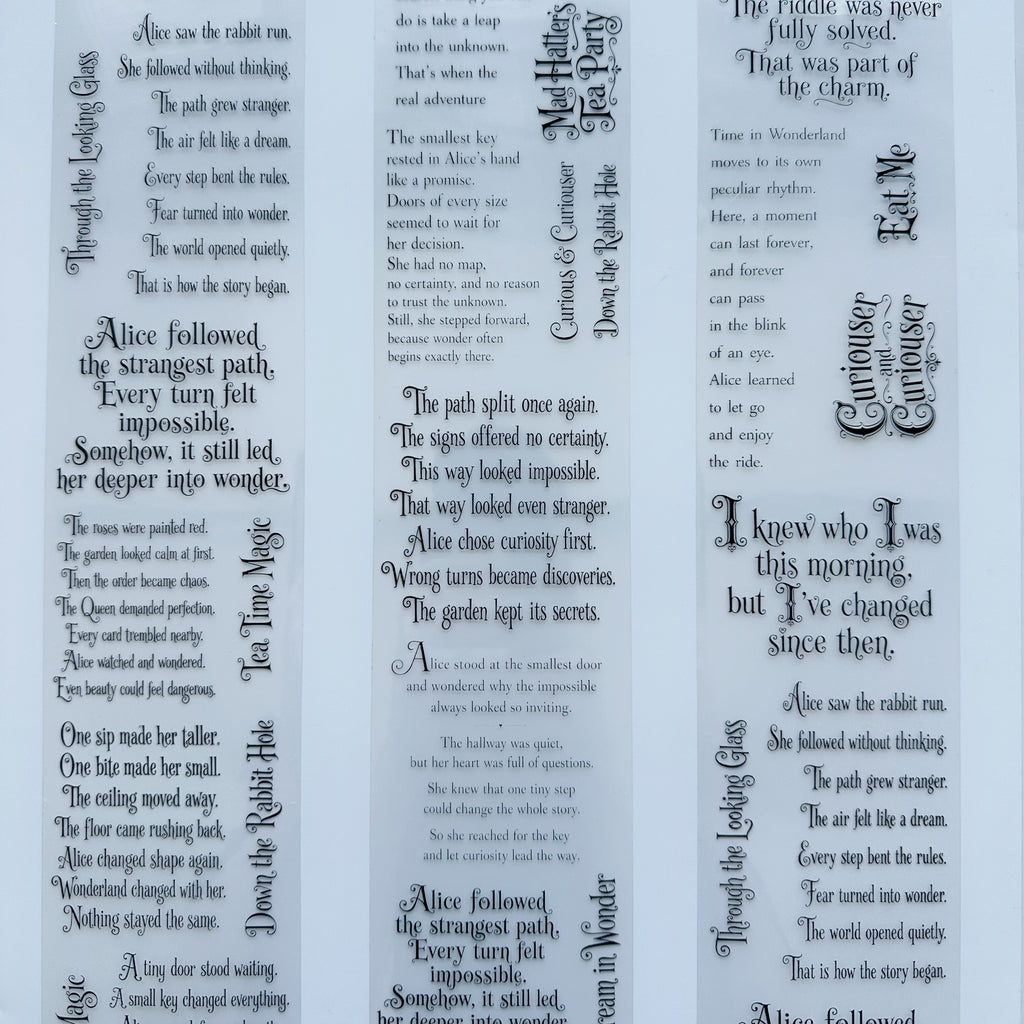 Alice saw the rabbit run.
She followed without thinking.
The path grew stranger.
The air felt like a dream.
Every step bent the rules.
Fear turned into wonder.
The world opened quietly.
That is how the story began.
Through the Looking Glass
Alice followed
the strangest path.
Every turn felt
impossible.
Somehow, it still led
her deeper into wonder.
The roses were painted red.
The garden looked calm at first.
Then the order became chaos.
The Queen demanded perfection.
Every card trembled nearby.
Alice watched and wondered.
Even beauty could feel dangerous.
Tea Time Magic
One sip made her taller.
One bite made her small.
The ceiling moved away.
The floor came rushing back.
Alice changed shape again.
Wonderland changed with her.
Nothing stayed the same.
Down the Rabbit Hole
A tiny door stood waiting.
A small key changed everything.
Magic
do is take a leap
into the unknown.
That's when the
real adventure
Mad Hatter's
Tea Party
The smallest key
rested in Alice's hand
like a promise.
Doors of every size
seemed to wait for
her decision.
She had no map,
no certainty, and no reason
to trust the unknown.
Still, she stepped forward,
because wonder often
begins exactly there.
Curious & Curiouser
Down the Rabbit Hole
The path split once again.
The signs offered no certainty.
This way looked impossible.
That way looked even stranger.
Alice chose curiosity first.
Wrong turns became discoveries.
The garden kept its secrets.
Alice stood at the smallest door
and wondered why the impossible
always looked so inviting.
The hallway was quiet,
but her heart was full of questions.
She knew that one tiny step
could change the whole story.
So she reached for the key
and let curiosity lead the way.
Alice followed
the strangest path.
Every turn felt
impossible.
Somehow, it still led
her deeper into wonder
ream in Wonder
The riddle was never
fully solved.
That was part of
the charm.
Time in Wonderland
moves to its own
peculiar rhythm.
Here, a moment
can last forever,
and forever
can pass
in the blink
of an eye.
Alice learned
to let go
and enjoy
the ride.
Eat Me
Curiouser
and
Curiouser
I knew who I was
this morning,
but I've changed
since then.
Alice saw the rabbit run.
She followed without thinking.
The path grew stranger.
The air felt like a dream.
Every step bent the rules.
Fear turned into wonder.
The world opened quietly.
That is how the story began.
Through the Looking Glass
Alice followed